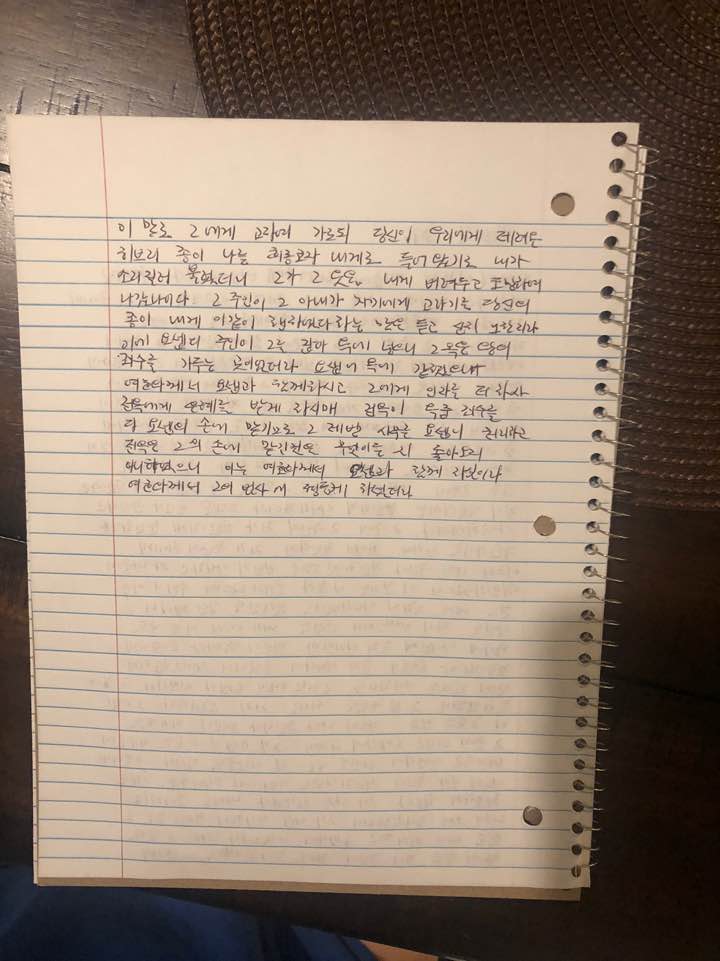 이 말로 그에게 고하여 가로되 당신이 우리에게 데려온
히브리 종이 나를 희롱코자 내게로 들어 왔기로 내가
소리질러 불렀더니 그가 그 옷을 내게 버려두고 도망하여
나갔나이다 그 주인이 그 아내가 자기에게 고하기를 당신의
종이 내게 이같이 행하였다 하는 말을 듣고 심히 노한지라
이에 요셉의 주인이 그를 잡아 옥에 넣으니 그 옥은 왕의
죄수를 가두는 곳이었더라 요셉이 옥에 갇혔으나
여호와께서 요셉과 함께하시고 그에게 인자를 더하사
전옥에게 은혜를 받게 하시매 전옥이 옥중 죄수를
다 요셉의 손에 맡기므로 그 제반 사무를 요셉이 처리하고
전옥은 그의 손에 맡긴 것은 무엇이든지 돌아보지
아니하였으니 이는 여호와께서 요셉과 함께 하심이라
여호와께서 그의 범사에 형통케 하셨더라